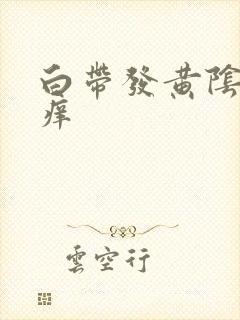 白帶發黃陰
痒
雲空行